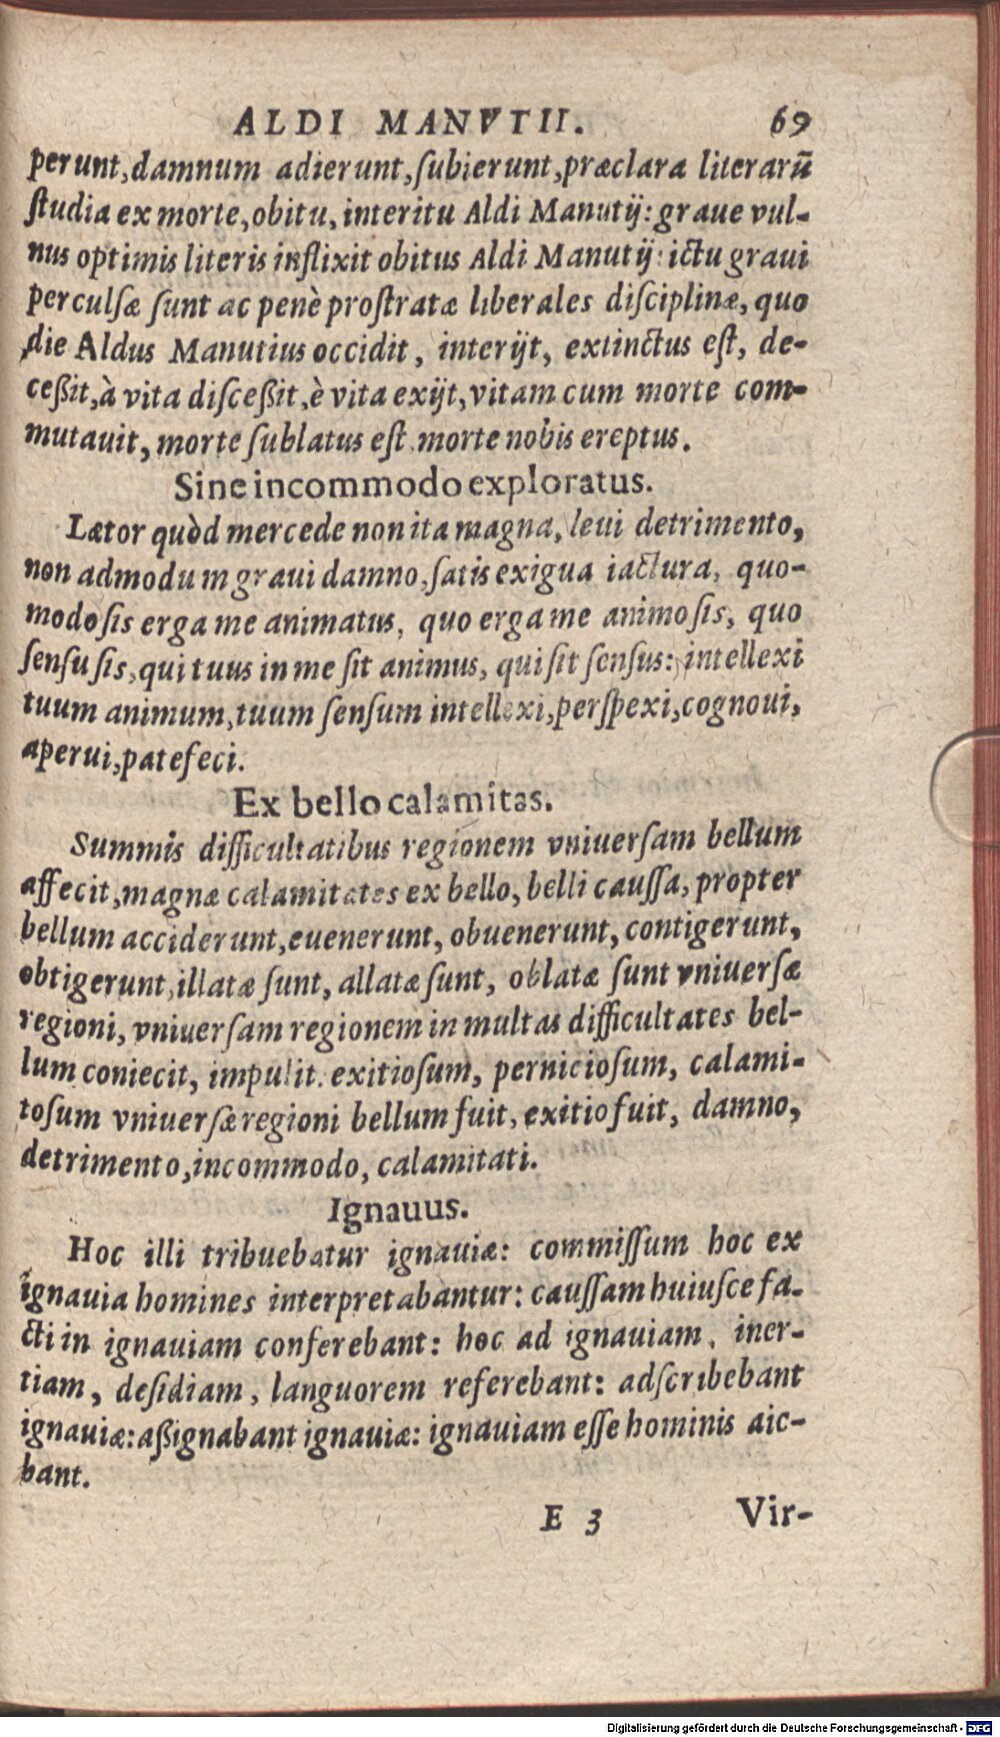 ALDI MANVTII. 69
perunt, damnum adierunt, ſubierunt, præclara literarũ
ſtudia ex morte, obitu, interitu Aldi Manutij: graue vul-
nus optimis literis inflixit obitus Aldi Manutij: ictu graui
perculſæ ſunt ac penè proſtratæ liberales diſciplinæ, quo
die Aldus Manutius occidit, interijt, extinctus eſt, de-
ceßit, à vita diſceßit, è vita exijt, vitam cum morte com-
mutauit, morte ſublatus eſt, morte nobis ereptus.
Sine incommodo exploratus.
Lætor quòd mercede non ita magna, leui detrimento,
non admodum graui damno, ſatis exigua iactura, quo-
modo ſis erga me animatus, quo erga me animo ſis, quo
ſenſu ſis, qui tuus in me ſit animus, qui ſit ſenſus: intellexi
tuum animum, tuum ſenſum intellexi, perſpexi, cognoui,
aperui, patefeci.
Ex bello calamitas.
Summis difficultatibus regionem vniuerſam bellum
affecit, magnæ calamitates ex bello, belli cauſſa, propter
bellum acciderunt, euenerunt, obuenerunt, contigerunt,
obtigerunt, illatæ ſunt, allatæ ſunt, oblatæ ſunt vniuerſæ
regioni, vniuerſam regionem in multas difficultates bel-
lum coniecit, impulit. exitioſum, pernicioſum, calami-
toſum vniuerſæ regioni bellum fuit, exitio fuit, damno,
detrimento, incommodo, calamitati.
Ignauus.
Hoc illi tribuebatur ignauiæ: commiſſum hoc ex
ignauia homines interpretabantur: cauſſam huiuſce fa-
cti in ignauiam conferebant: hoc ad ignauiam, iner-
tiam, deſidiam, languorem referebant: adſcribebant
ignauiæ: aßignabant ignauiæ: ignauiam eſſe hominis aic-
bant.
E 3 Vir-
Digitalisierung gefördert durch die Deutsche Forschungsgemeinschaft - DFG